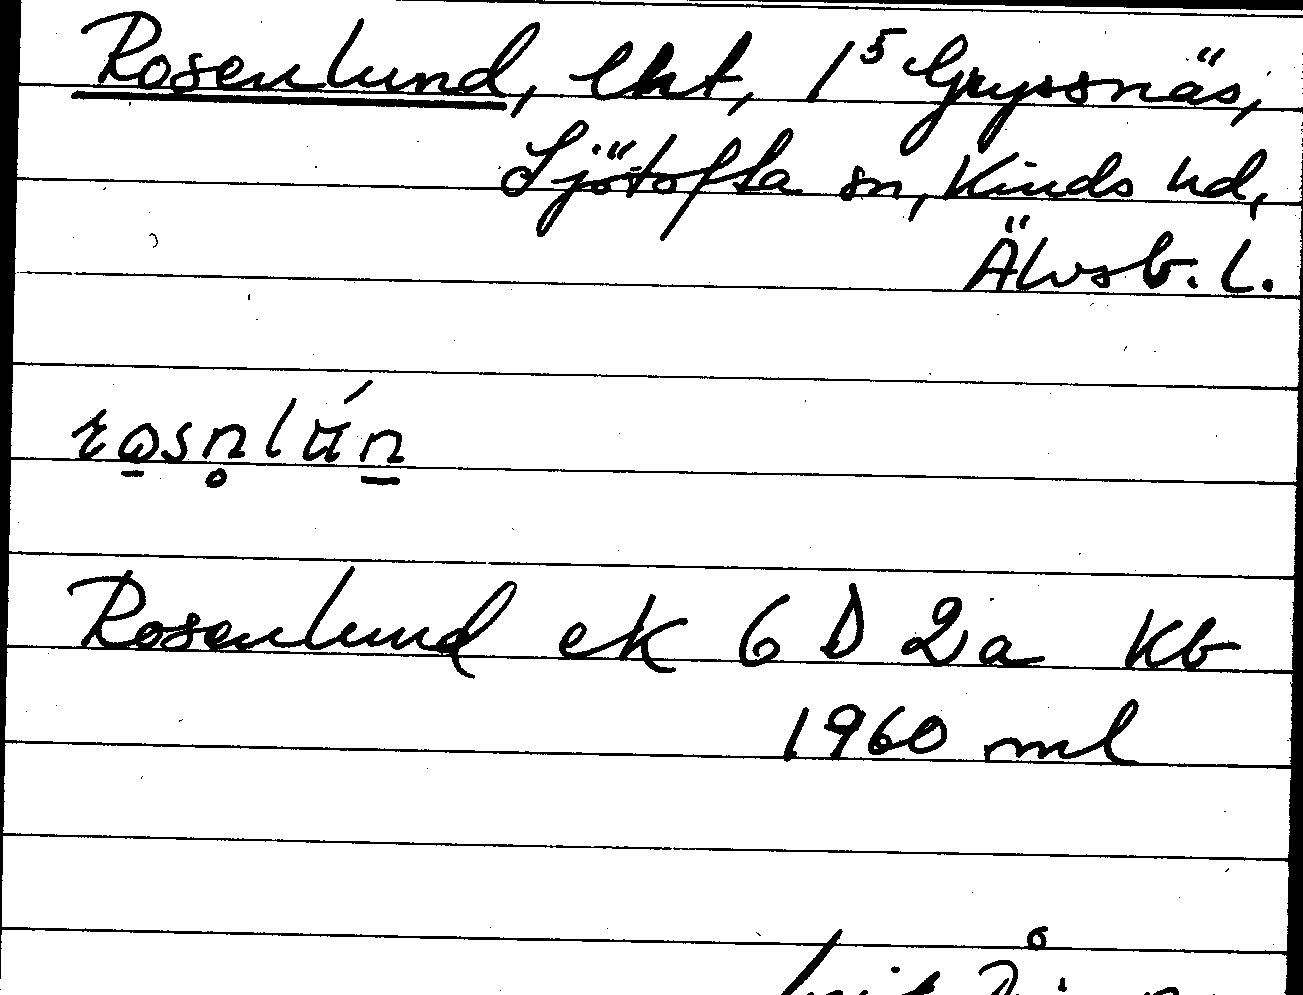 Rosenlund, lht, 1⁵ Gryssnäs,
Sjötofta sn, Kinds hd,
Älvsb. l.
Rosenlund ek 6 D 2a Kb
1960 ml